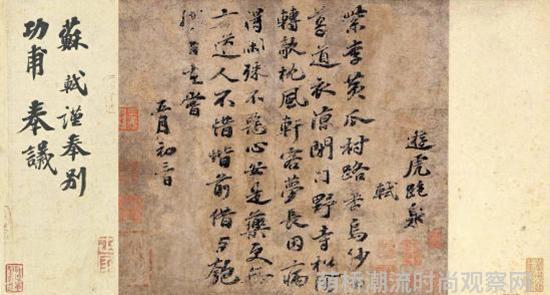 遊虎跑泉
軾
紫李黃瓜村路香烏紗
葛道衣涼閉門野寺松陰
轉欹枕風軒客夢長因病
得閑殊不惡心安是藥更無
方道人不惜階前借与匏
樽自在嘗
五月初三日
蘇軾謹奉別
功甫奉議
萌桥潮流时尚观察网